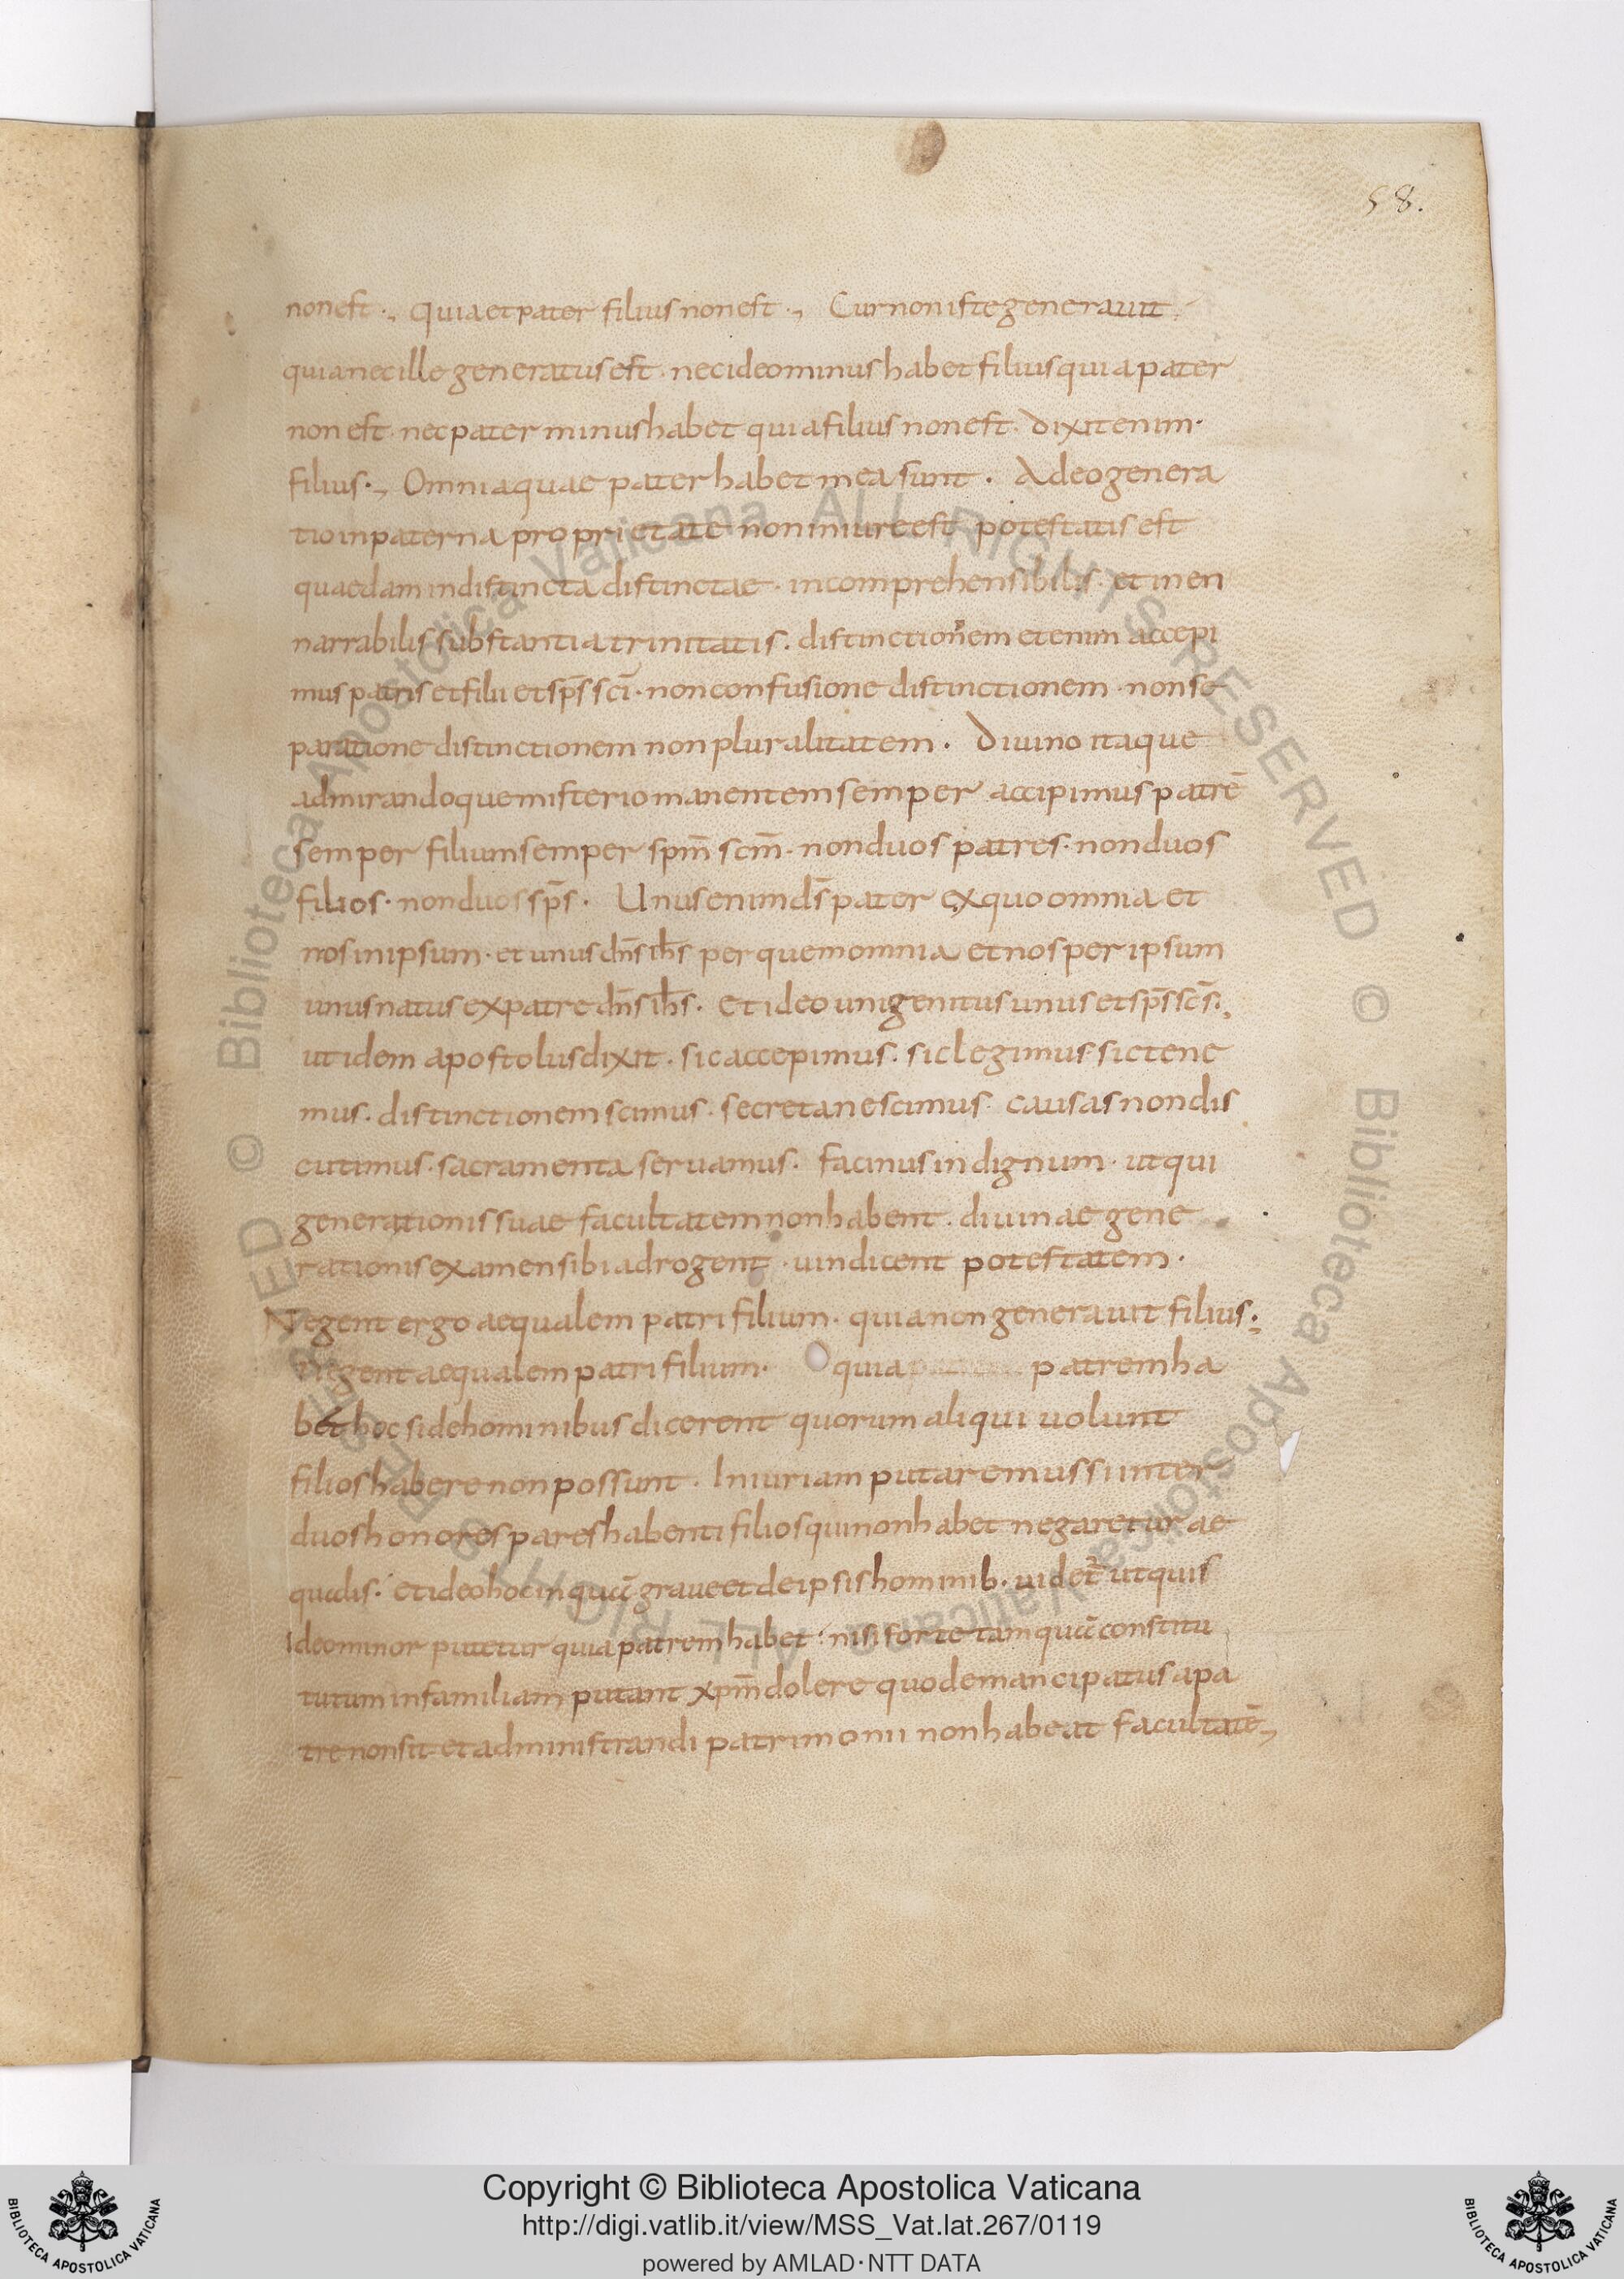 58.
non est ·, Quia et pater filius non est ·, Cur non iste generauit
quia nec ille generatus est · nec ideo minus habet filius quia pater
non est · nec pater minus habet quia filius non est · Dixit enim ·
filius ·, Omnia quae pater habet mea sunt · Adeo genera
tio in paterna proprietate non in iure est potestatis est
quaedam indistincta distinctae · incomprehensibilis · et inen
narrabilis substantia trinitatis · distinctionem etenim accepi
mus patris et filii et sp̄s sc̄i · non confusione distinctionem · non se
paratione distinctionem non pluralitatem · Diuino itaque
admirandoque misterio manentem semper accipimus patrē
semper filium semper sp̄m sc̄m · non duos patres · non duos
filios · non duos sp̄s · Unus enim d̄s pater ex quo omnia et
nos in ipsum · et unus dn̄s ih̄s per quem omnia et nos per ipsum
unus natus ex patre dn̄s ih̄s · et ideo unigenitus unus et sp̄s sc̄s ·,
ut idem apostolus dixit · sic accepimus · sic legimus · sic tene
mus · distinctionem scimus · secreta nescimus · causas non dis
cutimus · sacramenta seruamus · facinus indignum · ut qui
generationis suae facultatem non habent · diuinae gene
rationis examen sibi adrogent · uindicent potestatem ·
Negent ergo aequalem patri filium · quia non generauit filius ·,
negent aequalem patri filium · quia patrem ha
bet hoc si de hominibus dicerent quorum aliqui uolunt
filios habere non possunt · Iniuriam putaremus si inter
duos honores pares habenti filios qui non habet negaretur ae
qualis · et ideo hoc inquā graue et de ipsis hominib · uidet̄ ut quis
Ideo minor putetur quia patrem habet · nisi forte tamquā constitu
tutum in familiam putant xp̄m dolere quod emancipatus a pa
tre non sit et administrandi patrimonii non habeat facultatē,
Copyright © Biblioteca Apostolica Vaticana
http://digi.vatlib.it/view/MSS_Vat.lat.267/0119
powered by AMLAD · NTT DATA
BIBLIOTECA APOSTOLICA VATICANA
BIBLIOTECA APOSTOLICA VATICANA